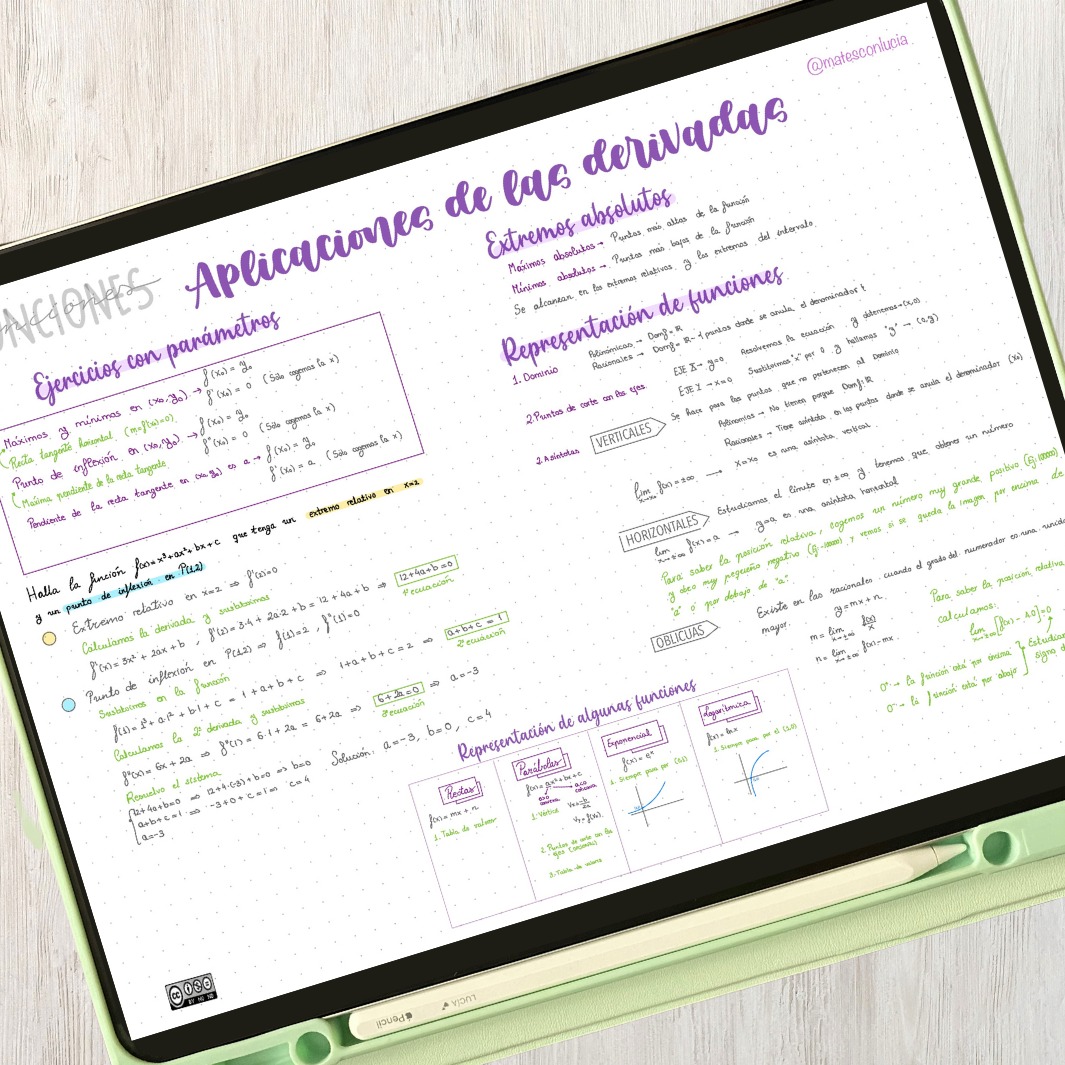 @matesconlucia
Aplicaciones de las derivadas
Ejercicios con parámetros
Máximos y mínimos en (x₀, y₀) → f(x₀) = y₀
f'(x₀) = 0 (Sólo cogemos la x)
Recta tangente horizontal (m=f'(x₀)=0)
Punto de inflexión en (x₀, y₀) → f(x₀) = y₀
f''(x₀) = 0 (Sólo cogemos la x)
Máxima pendiente de la recta tangente.
Pendiente de la recta tangente en (x₀, y₀) es a → f(x₀) = y₀
f'(x₀) = a. (Sólo cogemos la x)
Halla la función f(x) = x³ + ax² + bx + c que tenga un extremo relativo en x=2
y un punto de inflexión en P(1,2)
Extremo relativo en x=2 ⇒ f'(2)=0
Calculamos la derivada y sustituimos
f'(x) = 3x² + 2ax + b, f'(2) = 3·4 + 2a·2 + b = 12 + 4a + b ⇒ 12+4a+b = 0
1ª ecuación
Punto de inflexión en P(1,2) ⇒ f(1) = 2, f''(1) = 0
Sustituimos en la función
f(1) = 1³ + a·1² + b·1 + c = 1 + a + b + c ⇒ 1 + a + b + c = 2 ⇒ a+b+c = 1
2ª ecuación
Calculamos la 2ª derivada y sustituimos
f''(x) = 6x + 2a ⇒ f''(1) = 6·1 + 2a = 6 + 2a ⇒ 6+2a = 0 ⇒ a = -3
3ª ecuación
Resuelvo el sistema
12+4a+b=0 ⇒ 12+4·(-3)+b=0 ⇒ b=0
a+b+c=1 ⇒ -3+0+c=1 ⇒ c=4
a=-3
Solución: a=-3, b=0, c=4
Extremos absolutos
Máximos absolutos → Puntos más altos de la función
Mínimos absolutos → Puntos más bajos de la función
Se alcanzan en los extremos relativos y los extremos del intervalo
Representación de funciones
1. Dominio
Polinómicas → Dom f = ℝ
Racionales → Dom f = ℝ - { puntos donde se anula el denominador }
2. Puntos de corte con los ejes.
EJE X → y=0 Resolvemos la ecuación y obtenemos → (x,0)
EJE Y → x=0 Sustituimos "x" por 0 y hallamos "y" → (0,y)
2. Asíntotas
VERTICALES
Se hace para los puntos que no pertenecen al Dominio
Polinomios → No tienen porque Dom f = ℝ
Racionales → Tiene asíntota en los puntos donde se anula el denominador (x₀)
lim f(x) = ±∞ → x=x₀ es una asíntota vertical
HORIZONTALES
Estudiamos el límite en ±∞ y tenemos que obtener un número
lim f(x) = a → y=a es una asíntota horizontal
x→±∞
Para saber la posición relativa, cogemos un número muy grande positivo (Ej: 10000)
y otro muy pequeño negativo (Ej: -10000) y vemos si se queda la imagen por encima de
"a" o por debajo de "a".
OBLICUAS
Existe en las racionales cuando el grado del numerador es una
mayor.
y = mx + n.
m = lim f(x)/x
x→±∞
n = lim f(x) - mx
x→±∞
Para saber la posición relativa
calculamos:
lim [f(x) - A.O] = 0
x→±∞
0⁺ → la función está por encima
0⁻ → la función está por abajo
Estudiar
signo
Representación de algunas funciones
Rectas
f(x) = mx + n
1. Tabla de valores
Parábolas
f(x) = ax² + bx + c
1. Vértice
Vx = -b/2a
Vy = f(Vx)
2. Puntos de corte con los
ejes (opcional)
3. Tabla de valores
Exponencial
f(x) = eˣ
1. Siempre pasa por (0,1)
Logarítmica
f(x) = ln x
1. Siempre pasa por el (1,0)
BY NC ND
Pencil
LUCÍA